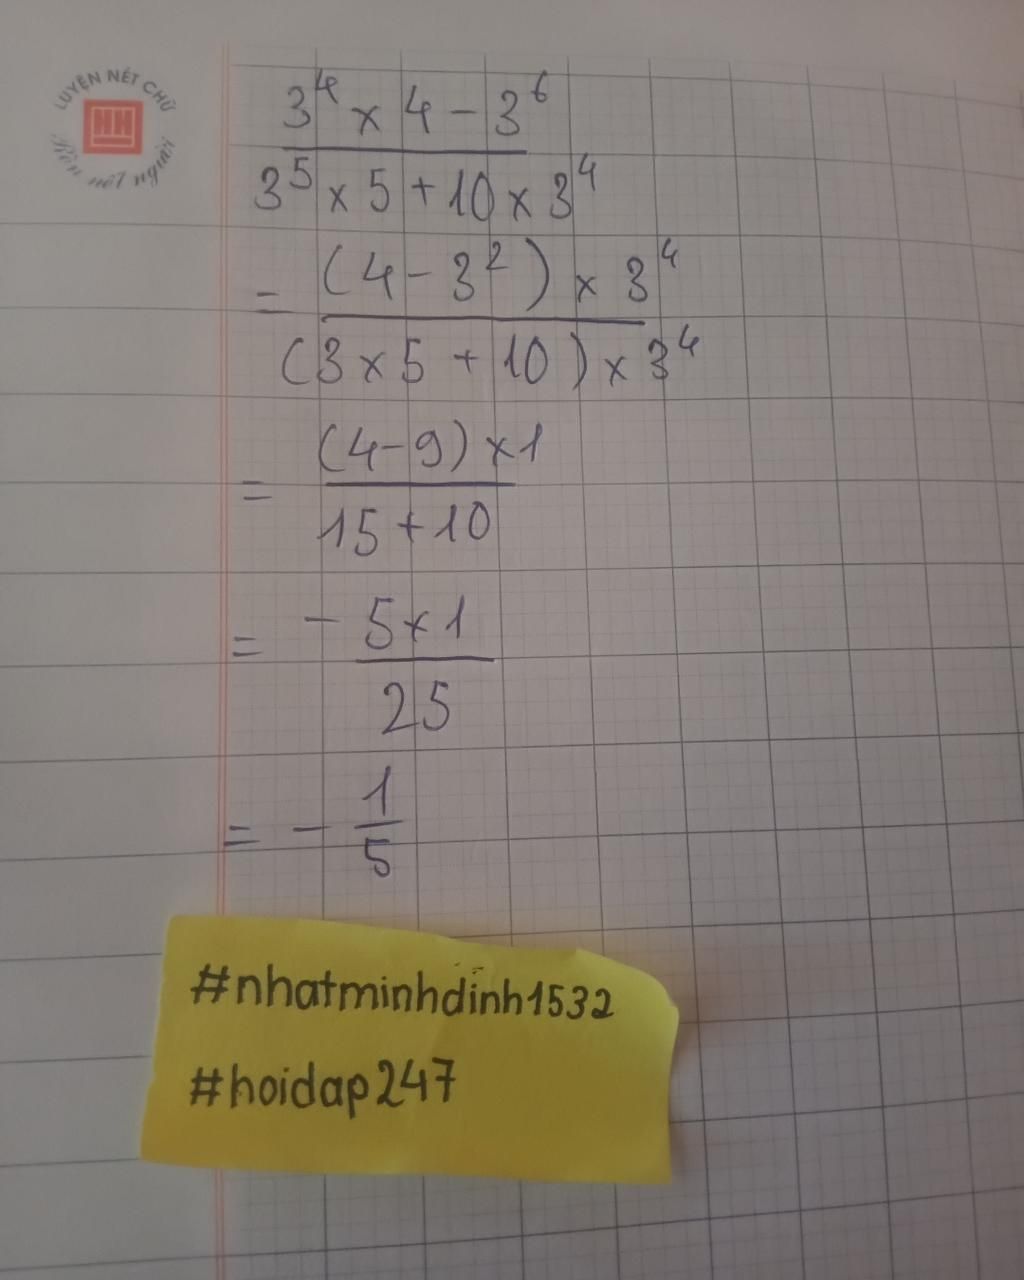 LUYỆN NÉT CHỮ
HH
Rèn nết người
3⁴ × 4 − 3⁶
3⁵ × 5 + 10 × 3⁴
= (4 − 3²) × 3⁴
(3 × 5 + 10) × 3⁴
= (4 − 9) × 1
15 + 10
= − 5 × 1
25
= − 1
5
#nhatminhdinh1532
#hoidap247